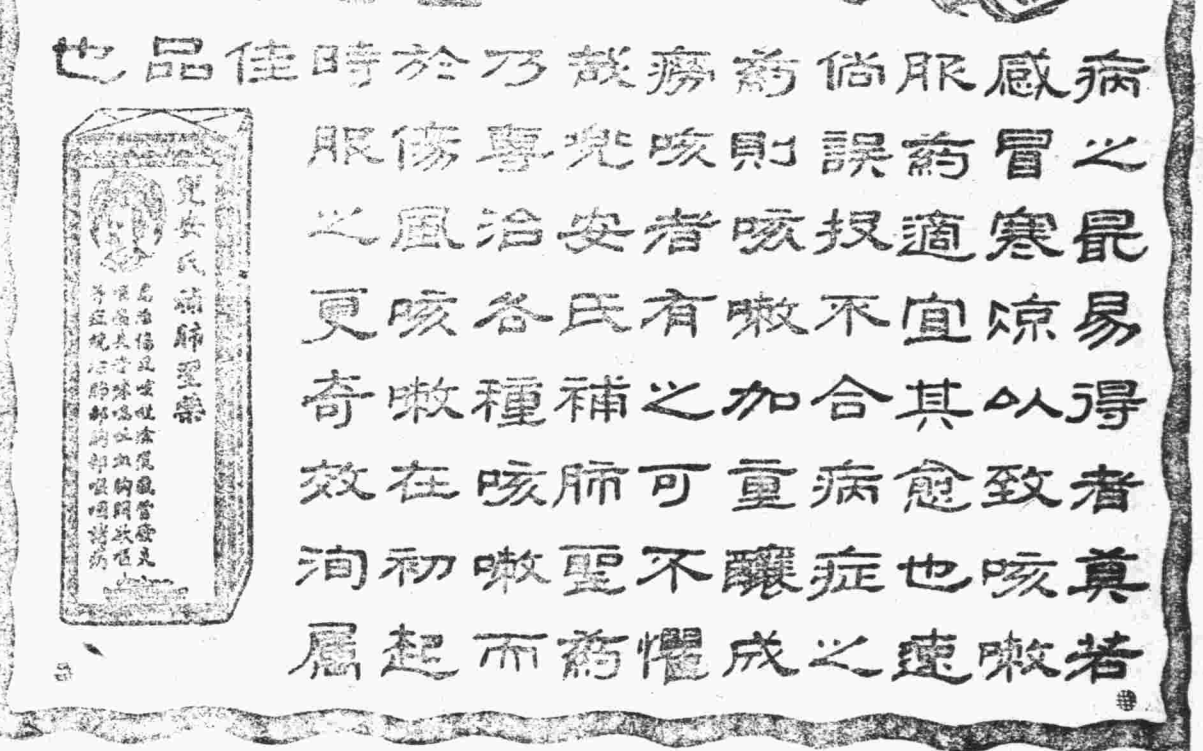 病之最易得者莫若
感冒寒凉以致咳嗽
服葯適宜其愈也速
倘誤投不合病症之
葯則咳嗽加重釀成
癆咳者有之可不懼
哉兜安氏補肺聖葯
乃專治各種咳嗽而
於傷風咳嗽在初起
時服之更奇效洵属
佳
品
也
兜安氏補肺聖藥